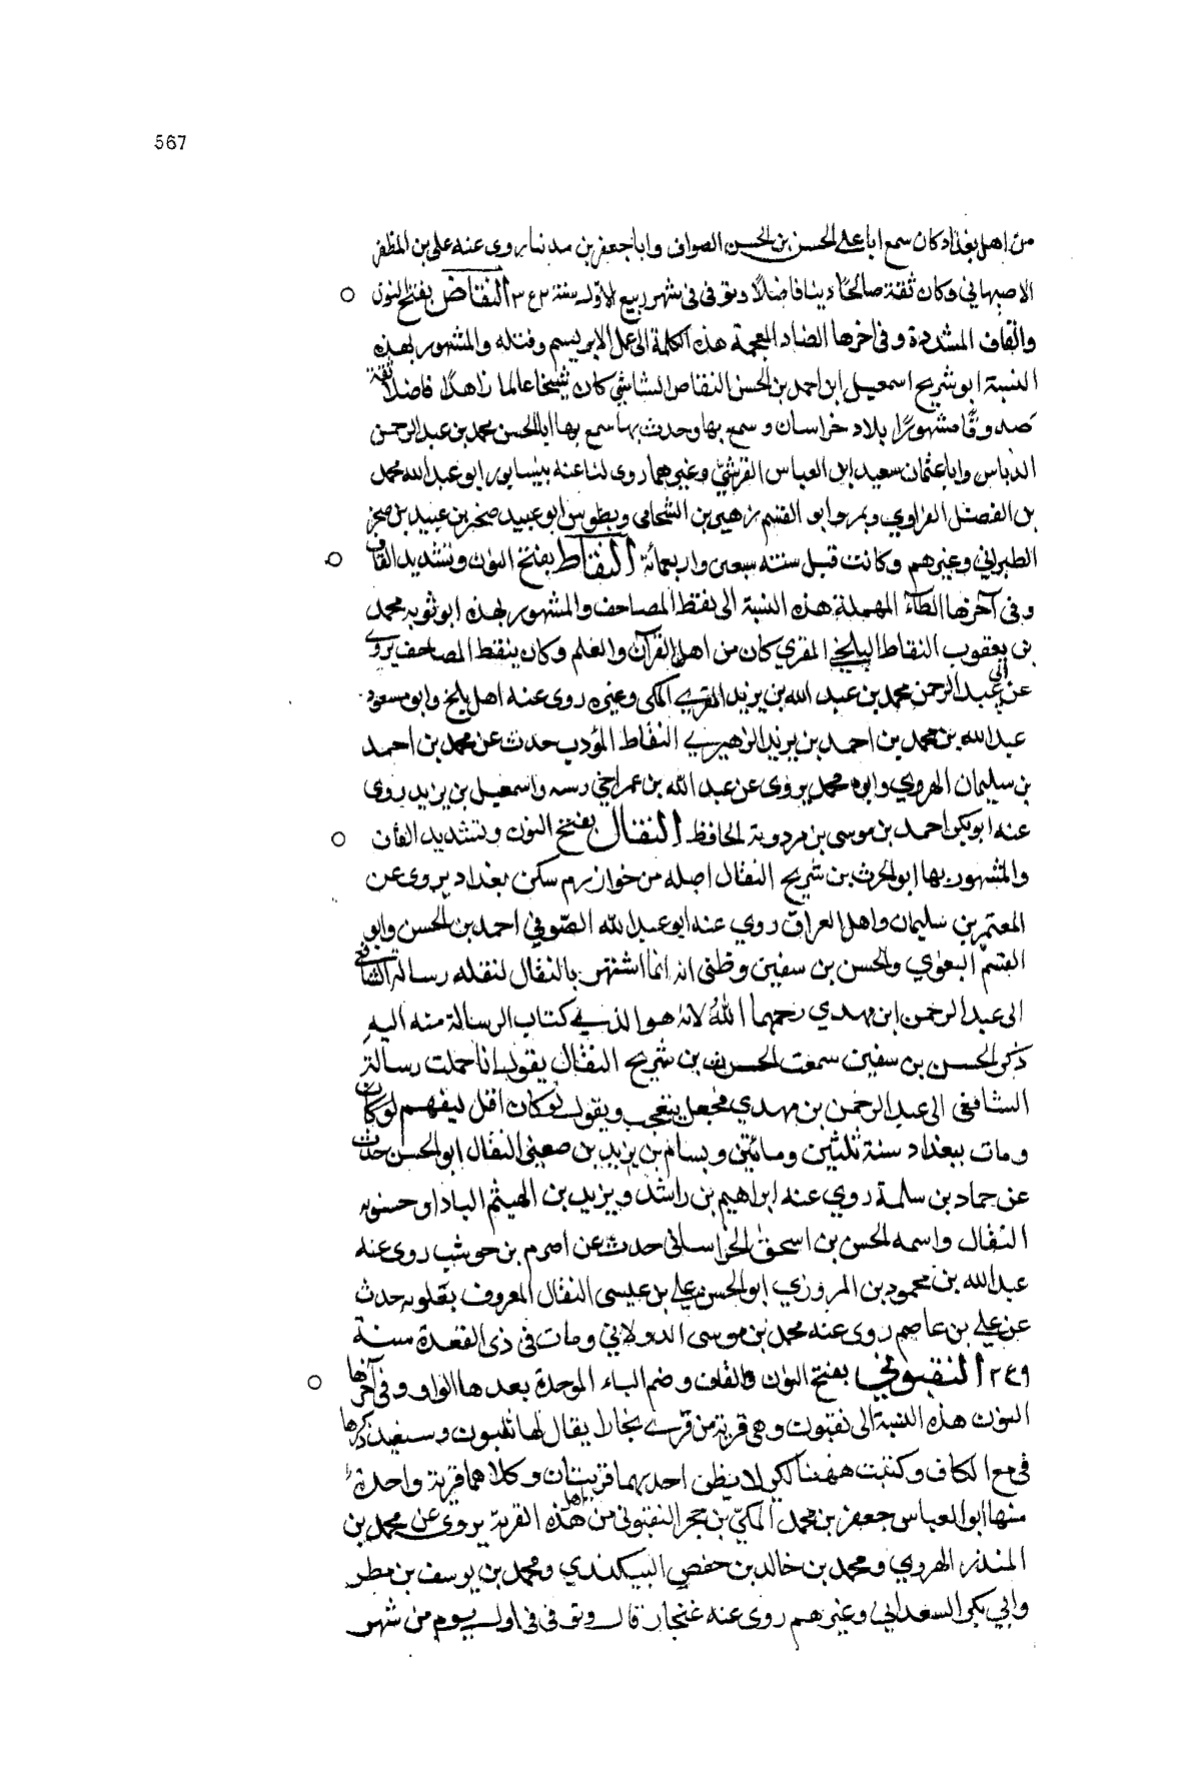 567
من اهل بغداد كان سمع ابا علي الحسن بن الحسن الصواف وابا جعفر بن يروى عنه علي بن المظفر
الاصبهاني وكان ثقة صالحا دينا فاضلا وتوفى فى شهر ربيع الاول سنة ٣٤٢ النقاض بفتح النون
والقاف المشددة وفى اخرها الضاد المعجمة هذه الكلمة الى عمل الابريسم وفتله والمشهور بهذه
النسبة ابو شريح اسمعيل ابن احمد بن الحسن النقاض الشاشي كان شيخا عالما زاهدا فاضلا ثقة
صدوقا مشهورا بلاد خراسان وسمع بها وحدث بها سمع بها ابا الحسن محمد بن عبد الرحمن
الدباس وابا عثمان سعيد ابن العباس القرشي وغيرهما روى لنا عنه بنيسابور ابو عبد الله محمد
بن الفضل الفراوي وبمرو ابو القسم زهير بن الشحامى وبطوس ابو عبيد صخر بن عبيد بن صخر
الطبراني وغيرهم وكانت قبل سنة سبعين واربعمائة النقاط بفتح النون وتشديد القاف
وفى آخرها الطاء المهملة هذه النسبة الى نقط المصاحف والمشهور بهذه ابو ثوبه محمد
بن يعقوب النقاط البلخي المقري كان من اهل القرآن والعلم وكان ينقط المصاحف يروي
عن ابي عبد الرحمن محمد بن عبد الله بن يزيد المقري المكى وغيره روى عنه اهل بلخ وابو مسعود
عبد الله بن محمد بن احمد بن يزيد الزهيري النقاط المؤدب حدث عن محمد بن احمد
بن سليمان الهروي وابوه محمد يروى عن عبد الله بن عمر اخي رسه واسمعيل بن يزيد روى
عنه ابو بكر احمد بن موسى بن مردوية الحافظ النقال بفتح النون وتشديد القاف
والمشهور بها ابو الحرث بن شريح النقال اصله من خوارزم سكن بغداد يروى عن
المعتمر بن سليمان واهل العراق روي عنه ابو عبد الله الصوفي احمد بن الحسن وابو
القسم البغوي والحسن بن سفين وظنى انه انما اشتهر بالنقال لنقله رسالة الشافعي
الى عبد الرحمن ابن مهدي رحمهما الله لانه هو الذي كتاب الرسالة منه اليه
ذكر الحسن بن سفين سمعت الحرث بن شريح النقال يقول انا حملت رسالة
الشافعى الى عبد الرحمن بن مهدي فجعل يتعجب ويقول لو كان اقل ليفهم لو كان
ومات ببغداد سنة ثلثين ومائتين وبسام بن يزيد بن صعينى النقال ابو الحسن حدث
عن حماد بن سلمة روي عنه ابراهيم بن راشد ويزيد بن الهيثم البادا وحسنويه
النقال واسمه الحسن بن اسحق الخراسانى حدث عن اصرم بن حوشب روى عنه
عبد الله بن محمود بن المروزي ابو الحسن علي بن عيسى النقال المعروف بعلويه حدث
عن علي بن عاصم روى عنه محمد بن موسى الدولابي ومات فى ذى القعدة سنة
٢٤٩ النقبوني بفتح النون والقاف وضم الباء الموحدة بعدها الواو وفى آخرها
النون هذه النسبة الى نقبون وهى قرية من قرى بخارا يقال لها نقبون وسنعيد ذكرها
فى مع الكاف وكتبت ههنا لكي لا يظن احد بهما قريتان وكلاهما قرية واحدة
منها ابو العباس جعفر بن محمد المكيّ بن حجر النقبونى من اهل هذه القرية يروى عن محمد بن
المنذر الهروي ومحمد بن خالد بن حفص البيكندي ومحمد بن يوسف بن مطر
وابي بكر السعدانى وغيرهم روى عنه غنجار قال وتوفى فى اول يوم من شهر